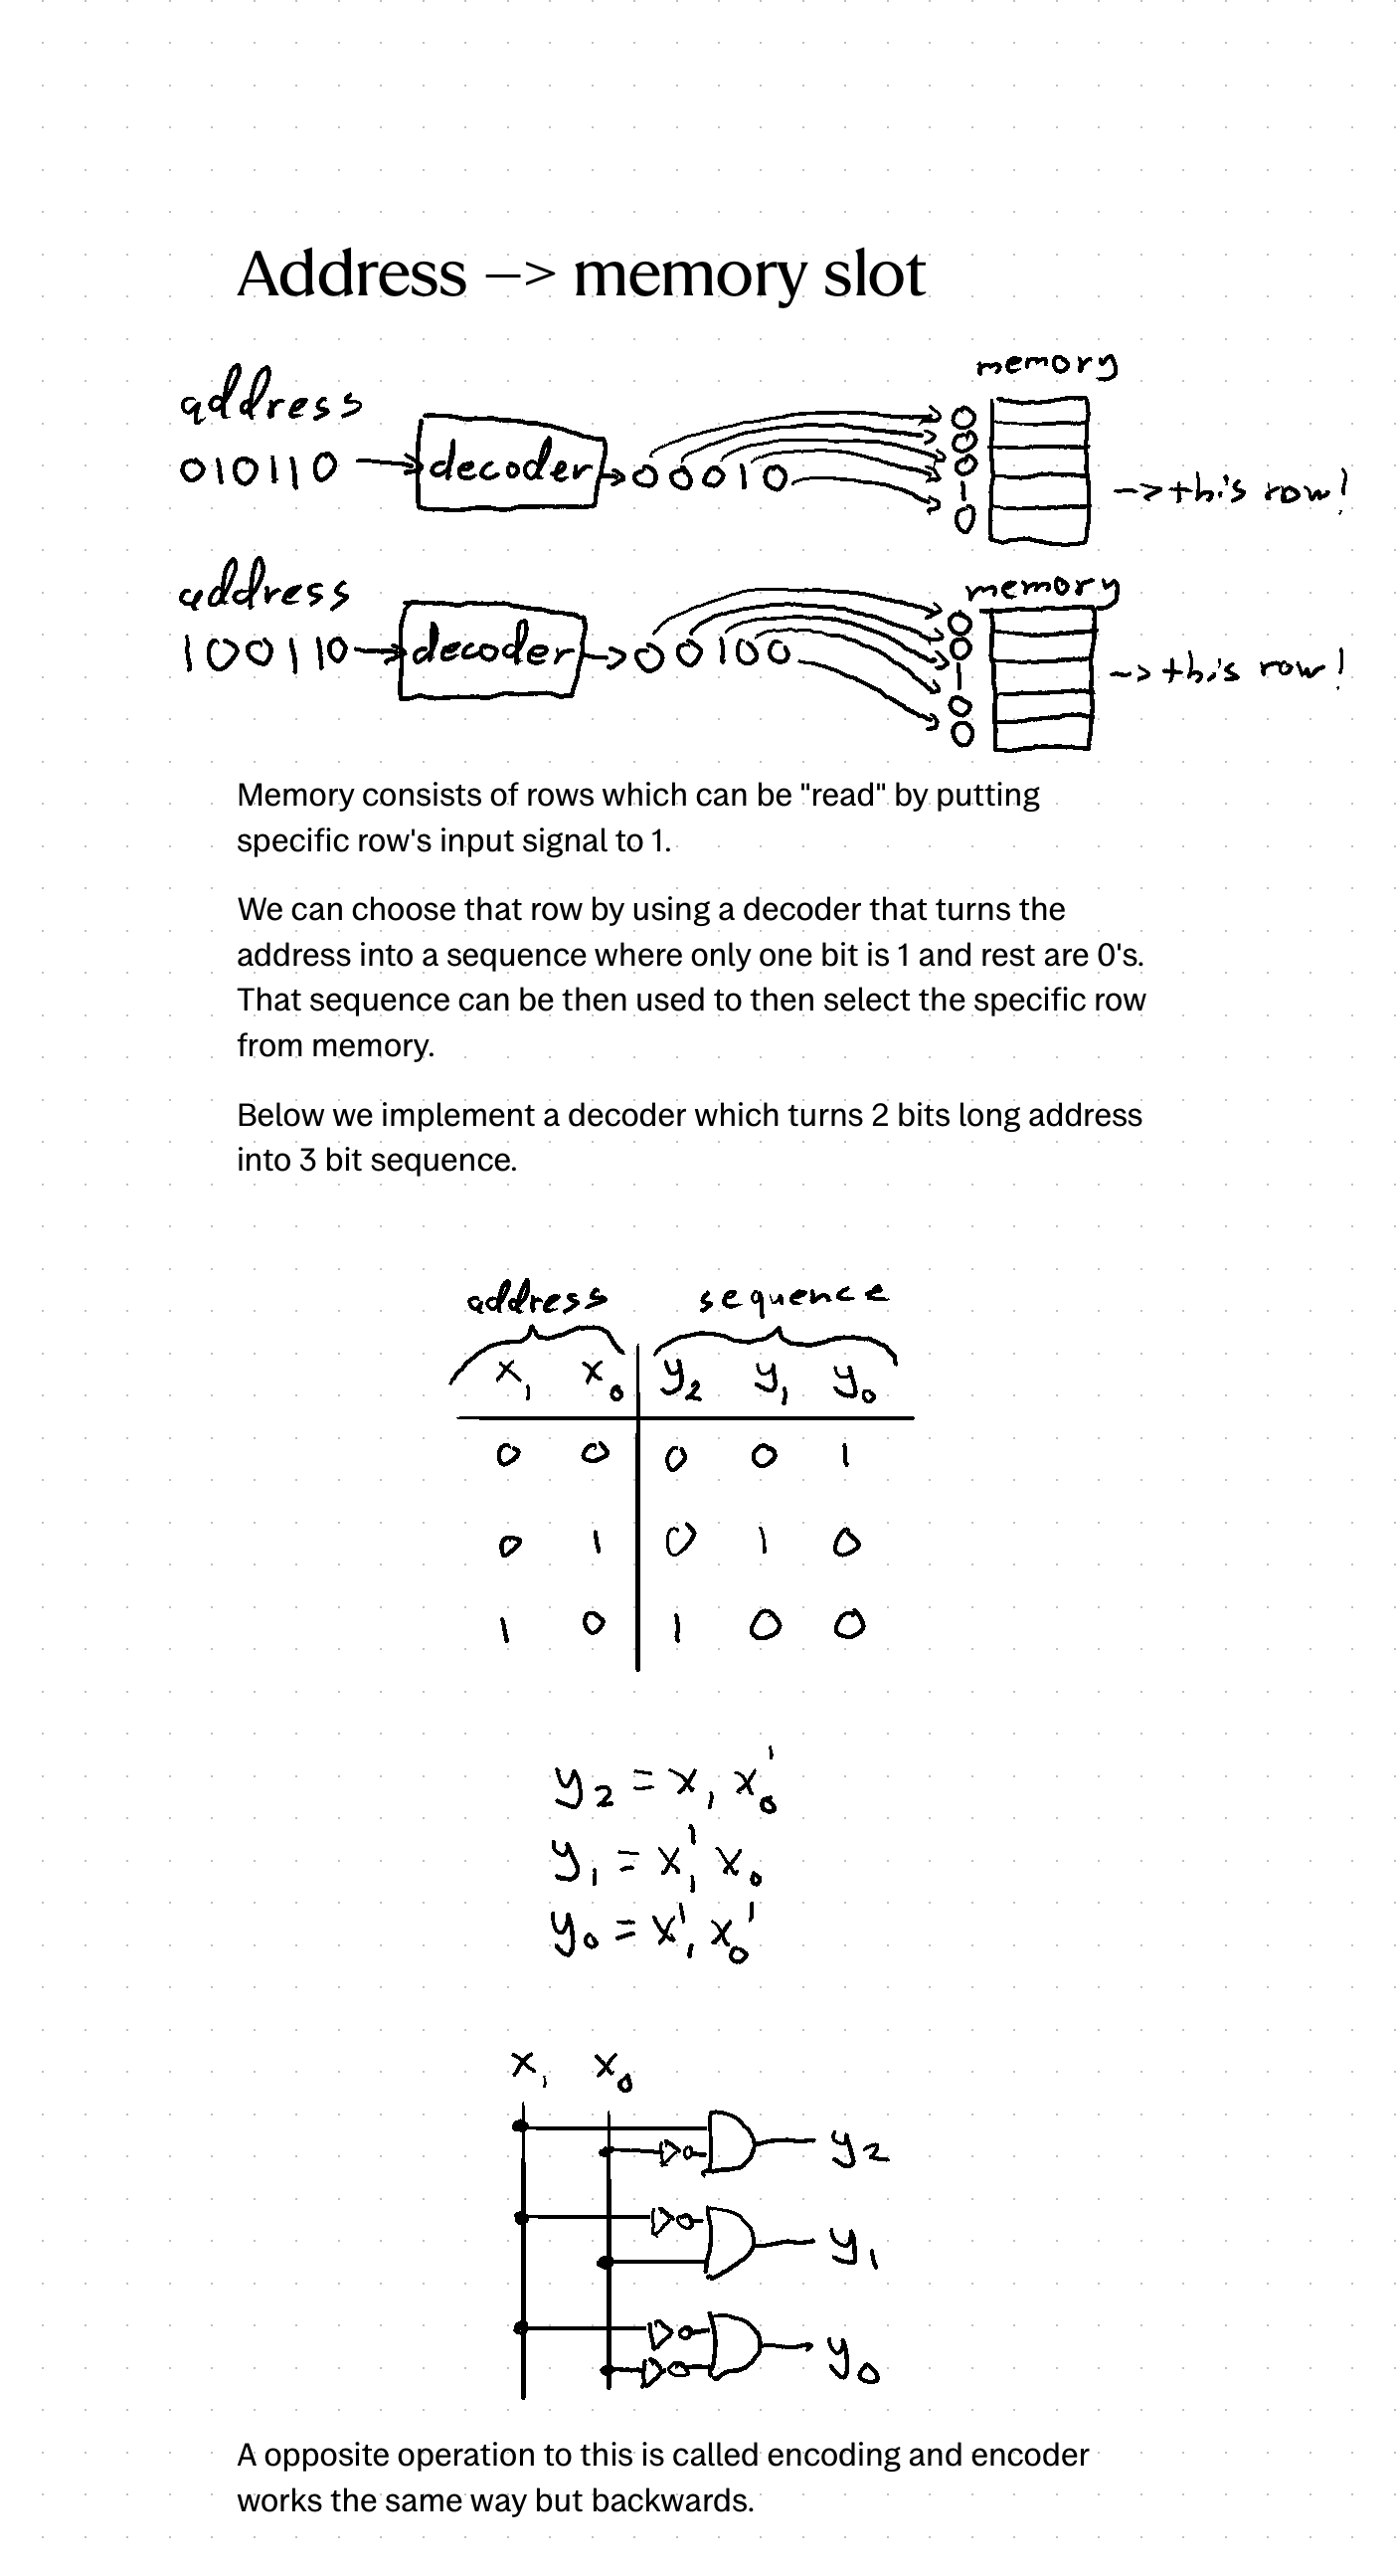 Address —> memory slot
memory
address
010110 → decoder → 00010 0 0 0 1 0 -> this row!
memory
address
100110 → decoder → 00100 0 0 1 0 0 -> this row!
Memory consists of rows which can be "read" by putting
specific row's input signal to 1.
We can choose that row by using a decoder that turns the
address into a sequence where only one bit is 1 and rest are 0's.
That sequence can be then used to then select the specific row
from memory.
Below we implement a decoder which turns 2 bits long address
into 3 bit sequence.
address sequence
x₁ x₀ y₂ y₁ y₀
0 0 0 0 1
0 1 0 1 0
1 0 1 0 0
y₂ = x₁ x₀'
y₁ = x₁' x₀
y₀ = x₁' x₀'
x₁ x₀
y₂
y₁
y₀
A opposite operation to this is called encoding and encoder
works the same way but backwards.